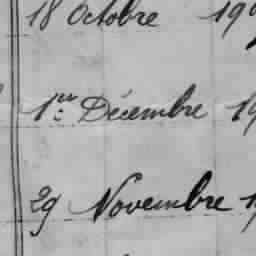 18 Octobre 19
1er Décembre 19
29 Novembre 1